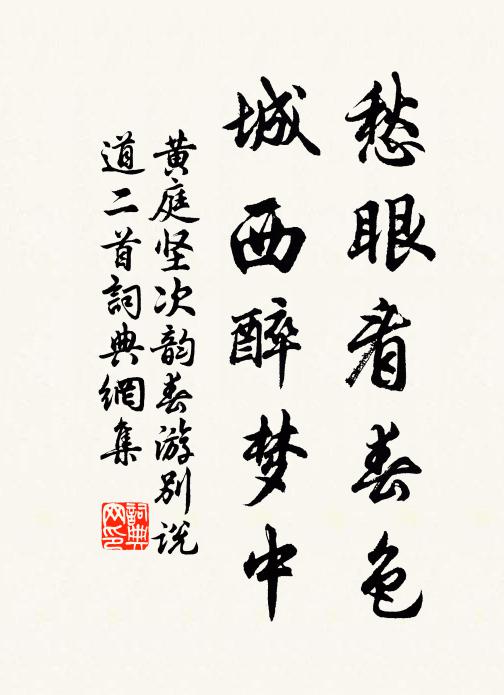 愁眼看春色
城西醉梦中
黄庭坚次韵春游别说
道二首詞典網集
詞典网印